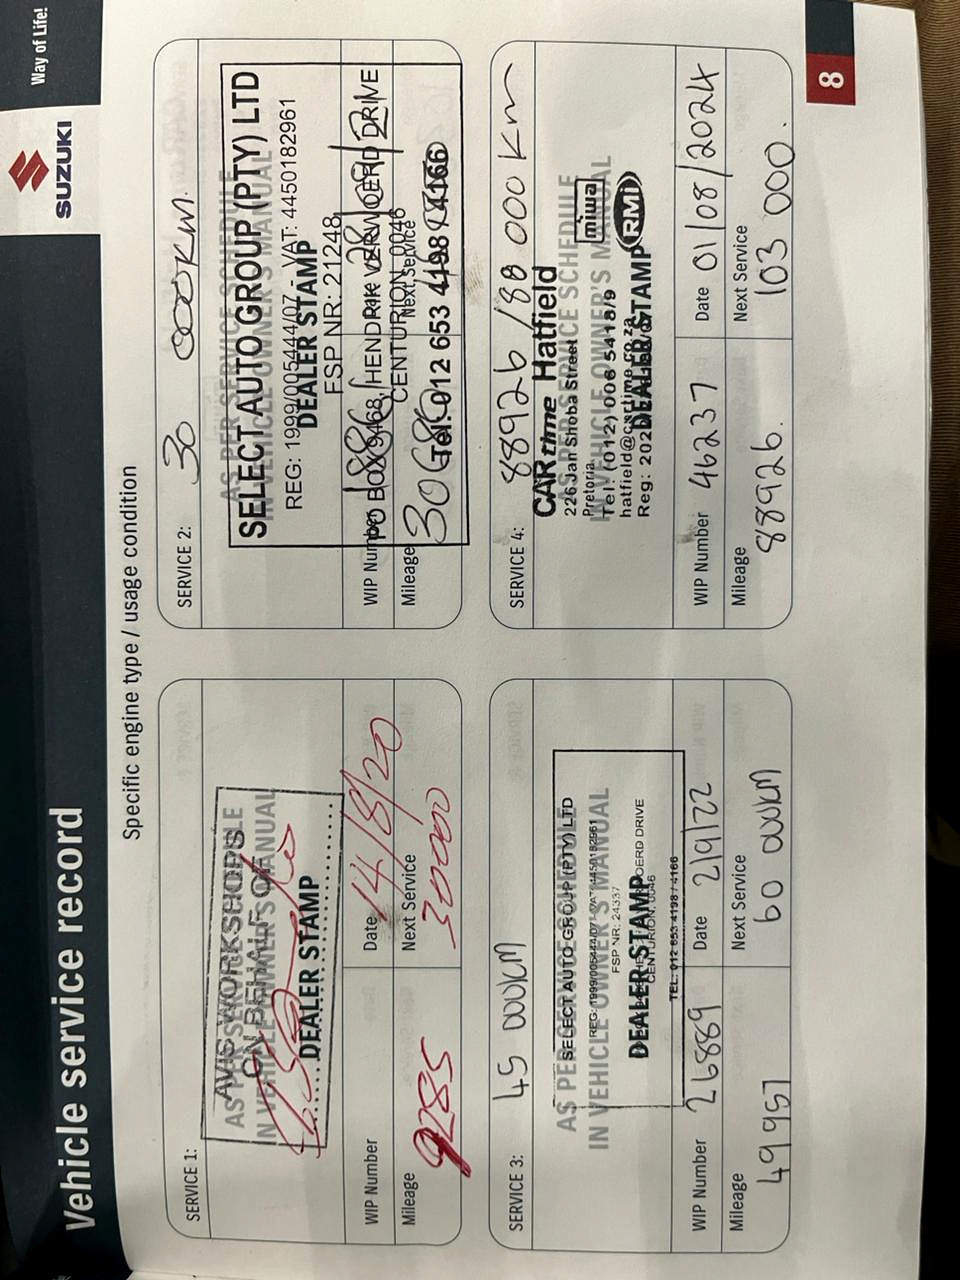 Way of Life!
SUZUKI
Vehicle service record
Specific engine type / usage condition
SERVICE 1:
AS PER SERVICE SCHEDULE
IN VEHICLE OWNER'S MANUAL
AVIS WORKSHOPS
ON BEHALF OF
DEALER STAMP
WIP Number
Date 14/8/20
Mileage
9285
Next Service
30000
SERVICE 2: 30 000KM.
AS PER SERVICE SCHEDULE
IN VEHICLE OWNER'S MANUAL
SELECT AUTO GROUP (PTY) LTD
REG: 1999/005444/07 - VAT: 4450182961
DEALER STAMP
FSP NR: 21248
PO BOX 9468, HENDRIK VERWOERD DRIVE
CENTURION, 0046
Tel: 012 653 4198 / 4166
WIP Number
Mileage
Next Service
SERVICE 3: 45 000KM
AS PER SERVICE SCHEDULE
IN VEHICLE OWNER'S MANUAL
SELECT AUTO GROUP (PTY) LTD
FSP NR: 24337
DEALER STAMP
CENTURION, 0046
TEL: 012 653 4198 / 4166
WIP Number 26889
Date 2/9/22
Mileage
49957
Next Service
60 000KM
SERVICE 4: 88926 / 88 000 Km
AS PER SERVICE SCHEDULE
IN VEHICLE OWNER'S MANUAL
CARtime Hatfield
226 Jan Shoba Street
Pretoria
Tel: (012) 006 5418/9
hatfield@cartime.co.za
DEALER STAMP
miwa
RMI
WIP Number 46237
Date 01/08/2024
Mileage
88926.
Next Service
103 000.
8